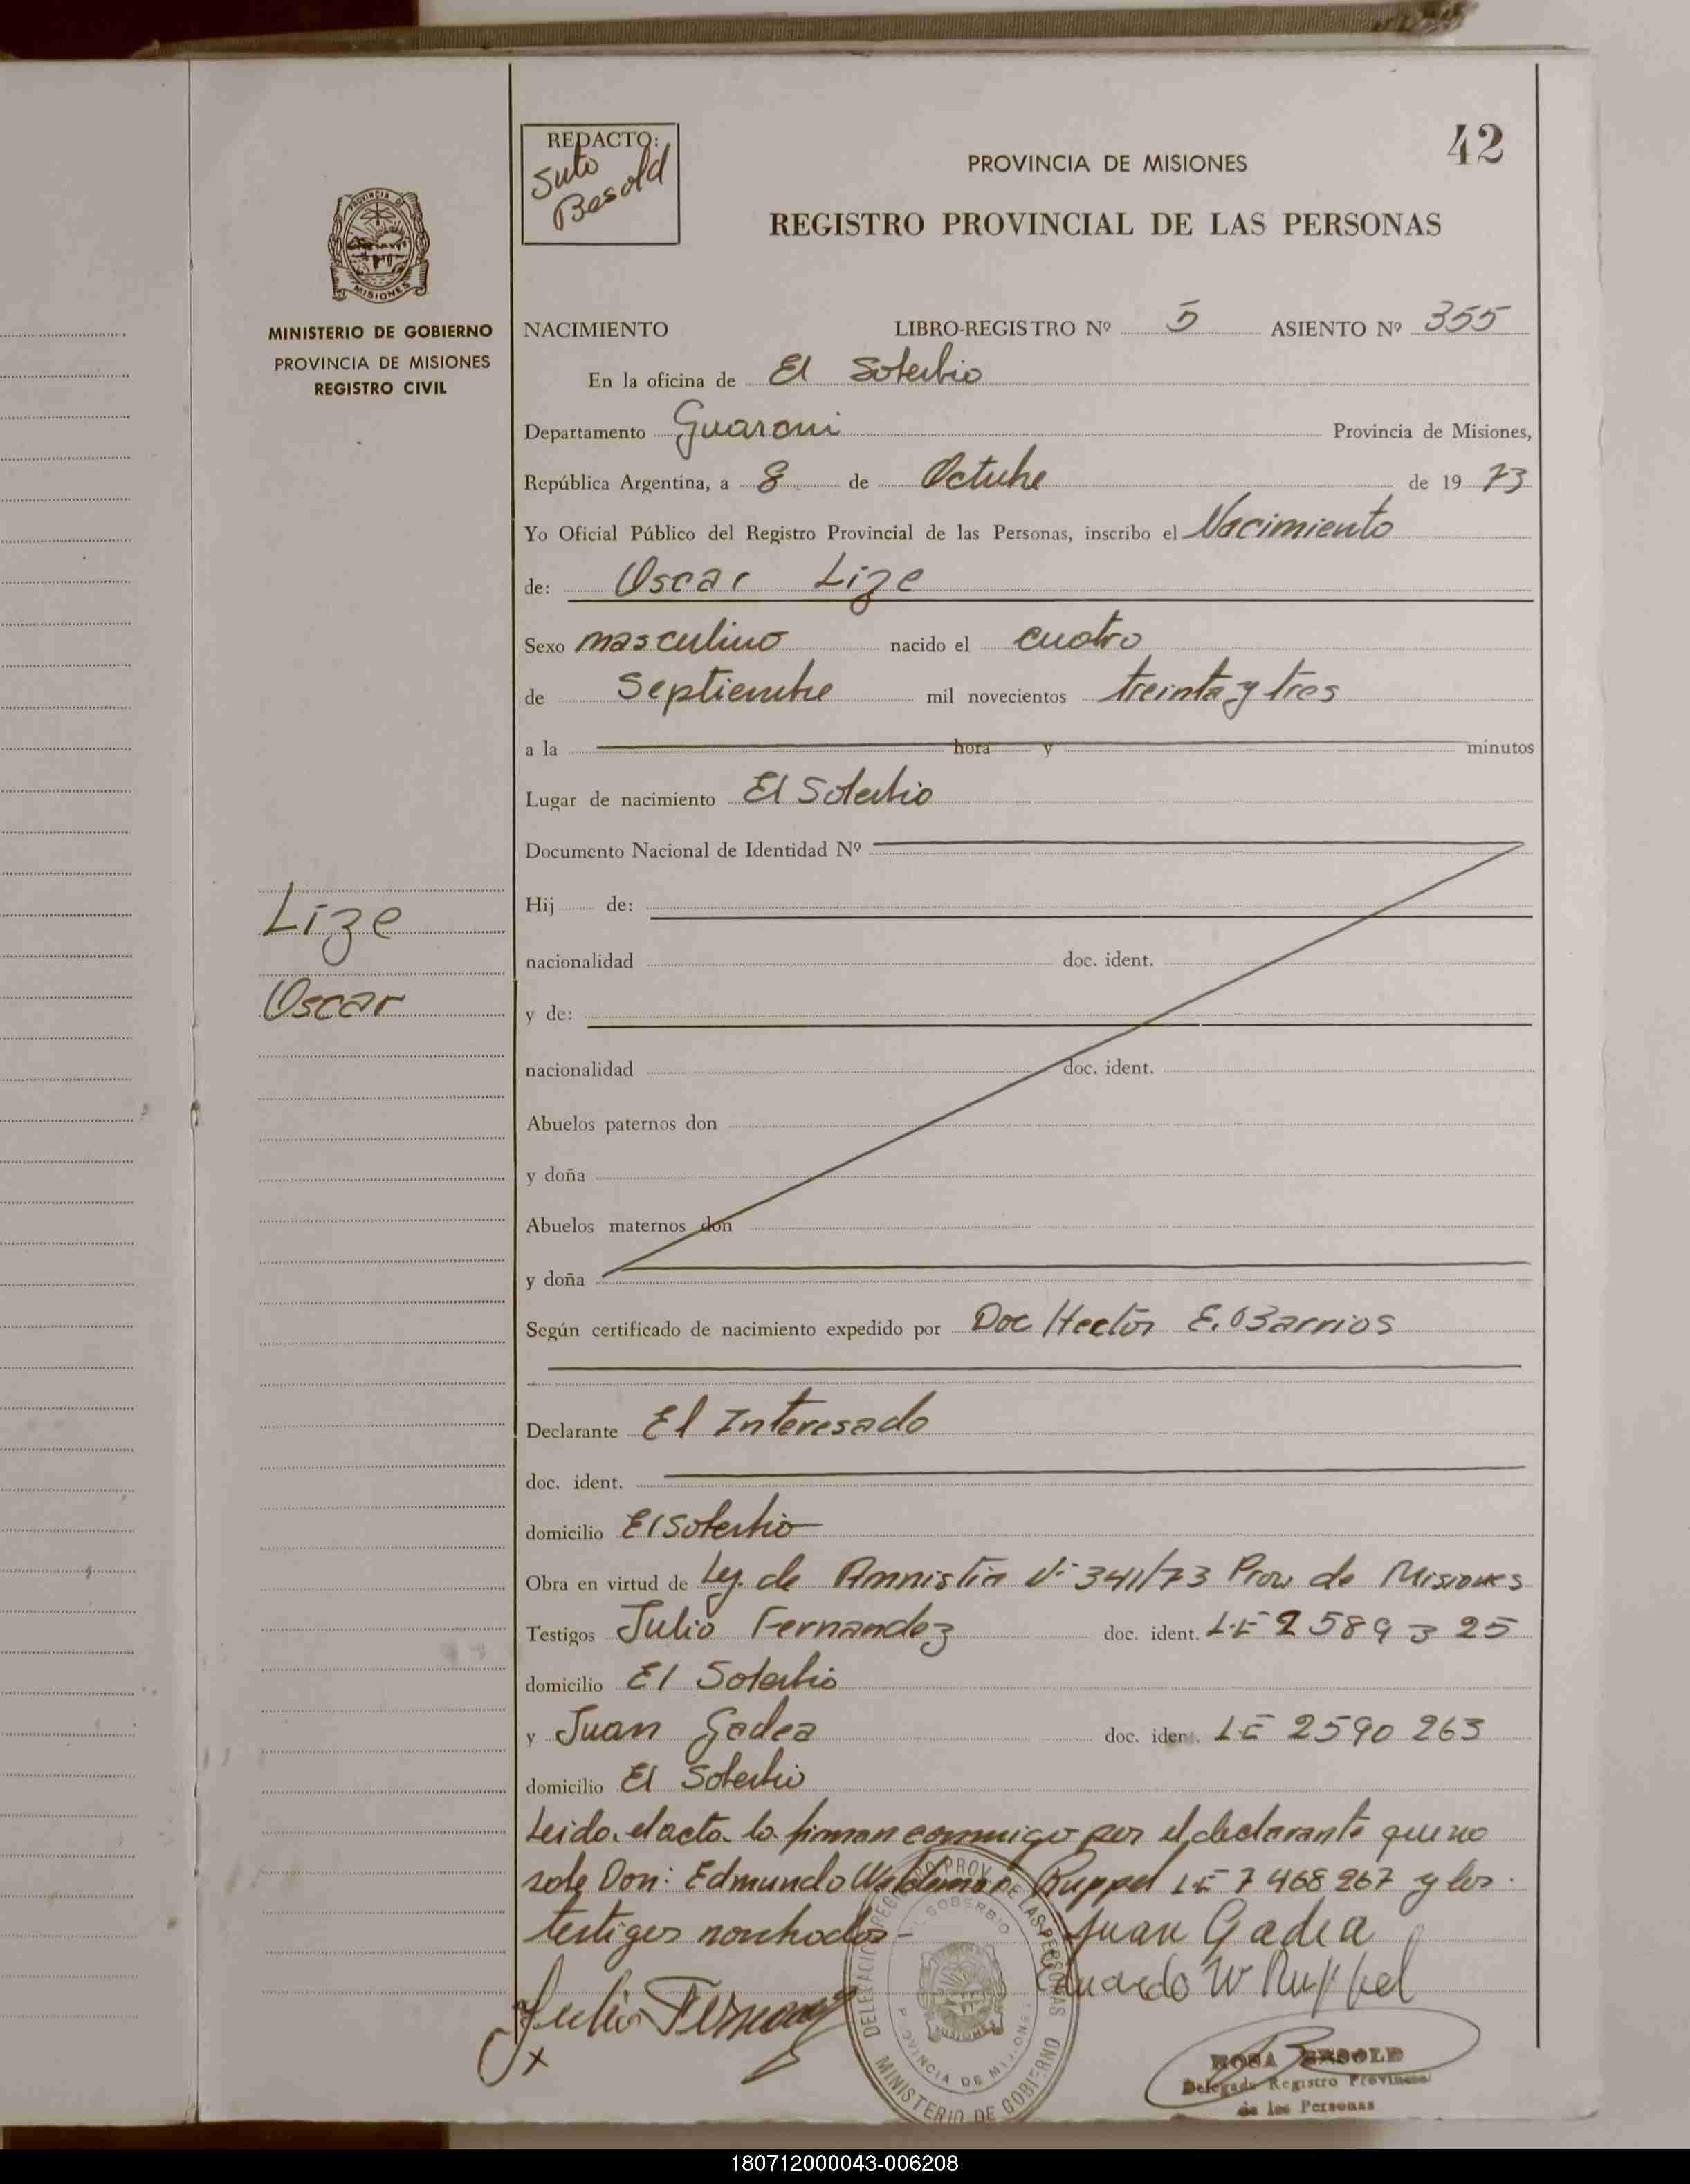 42
REDACTO:
Suto
Besold
PROVINCIA DE MISIONES
REGISTRO PROVINCIAL DE LAS PERSONAS
PROVINCIA DE
MISIONES
MINISTERIO DE GOBIERNO
PROVINCIA DE MISIONES
REGISTRO CIVIL
NACIMIENTO LIBRO-REGISTRO Nº 5 ASIENTO Nº 355
En la oficina de El Soberbio
Departamento Guarani Provincia de Misiones,
República Argentina, a 8 de Octubre de 19 73
Yo Oficial Público del Registro Provincial de las Personas, inscribo el Nacimiento
de: Oscar Lize
Sexo masculino nacido el cuatro
de Septiembre mil novecientos treinta y tres
a la hora y minutos
Lugar de nacimiento El Soberbio
Documento Nacional de Identidad Nº
Hij de:
nacionalidad doc. ident.
y de:
nacionalidad doc. ident.
Abuelos paternos don
y doña
Abuelos maternos don
y doña
Lize
Oscar
Según certificado de nacimiento expedido por Doc Hector E. Barrios
Declarante El Interesado
doc. ident.
domicilio El Soberbio
Obra en virtud de Ley. de Amnistia Nº 341/73 Prov de Misiones
Testigos Julio Fernandez doc. ident. L.E 2589325
domicilio El Soberbio
y Juan Gadea doc. ident. LE 2590263
domicilio El Soberbio
Leido el acta lo firman conmigo por el declarante que no
sabe Don: Edmundo Waldemar Ruppel LE 7468267 y los
testigos nombrados-
Juan Gadea
W Ruppel
Julio Fernandez
DELEGACION REGISTRO PROV. DE LAS PERSONAS
EL SOBERBIO
PROVINCIA DE MISIONES
MISIONES
MINISTERIO DE GOBIERNO
ROSA BESOLD
Delegada Registro Provincial
de las Personas
180712000043-006208